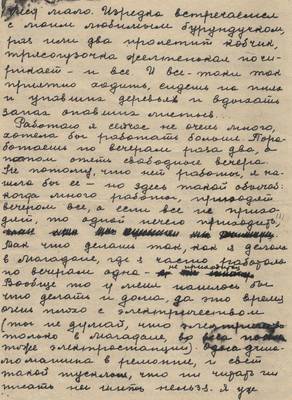 уся мало. Изредка встречаемся
с моим любимым бурундуком,
раз или два пролетит кобчик,
трясогузочка желтенькая почи-
рикает - и все. И все-таки так
приятно ходить, сидеть на пнях
и упавших деревьях и вдыхать
запах опавших листьев.
Работаю я сейчас не очень много,
хотела бы работать больше. Пора-
ботаешь по вечерам раза два, а
потом опять свободные вечера.
Не потому, что нет работы, я на-
шла бы ее - но здесь такой обычай:
когда много работы, приходят
вечером все, а если все не прихо-
дят, то одной нечего приходить,
Так что делать так, как я делала
в Магадане, где я часто работала
по вечерам одна - не приходится.
Вообще то у меня нашлось бы
что делать и дома, да это время
очень плохо с электричеством
(то не думай, что электричество
только в Магадане,
тоже электростанция). Одна
машина в ремонте, и свет
такой тусклый, что ни читать ни
писать ни шить нельзя. Я уж